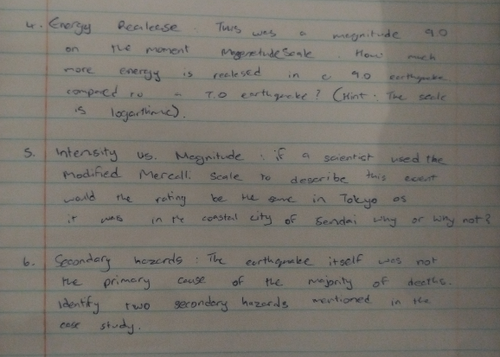 4. Energy Realease. This was a magnitude 9.0
on the moment MagenetudeScale. How much
more energy is realesed in a 9.0 earthquake
compared to a 7.0 earthquake? (Hint. The scale
is logarthmic).
5. Intensity us. Magnitude: if a scientist used the
Modified Mercall. Scale to describe this event
would the rating be the same in Tokyo as
it was in the coastal city of Sendai Why or Why not?
6. Secondary hazards: The earthquake itself was not
the primary cause of the majority of deaths.
Identify two secondary hazards mentioned in the
case study.